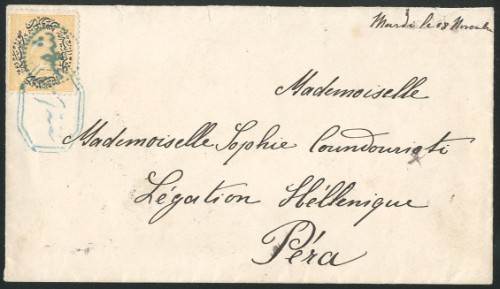 Mardi le 18 Novembre
Mademoiselle
Mademoiselle Sophie Coundourioti
Légation Héllenique
Péra